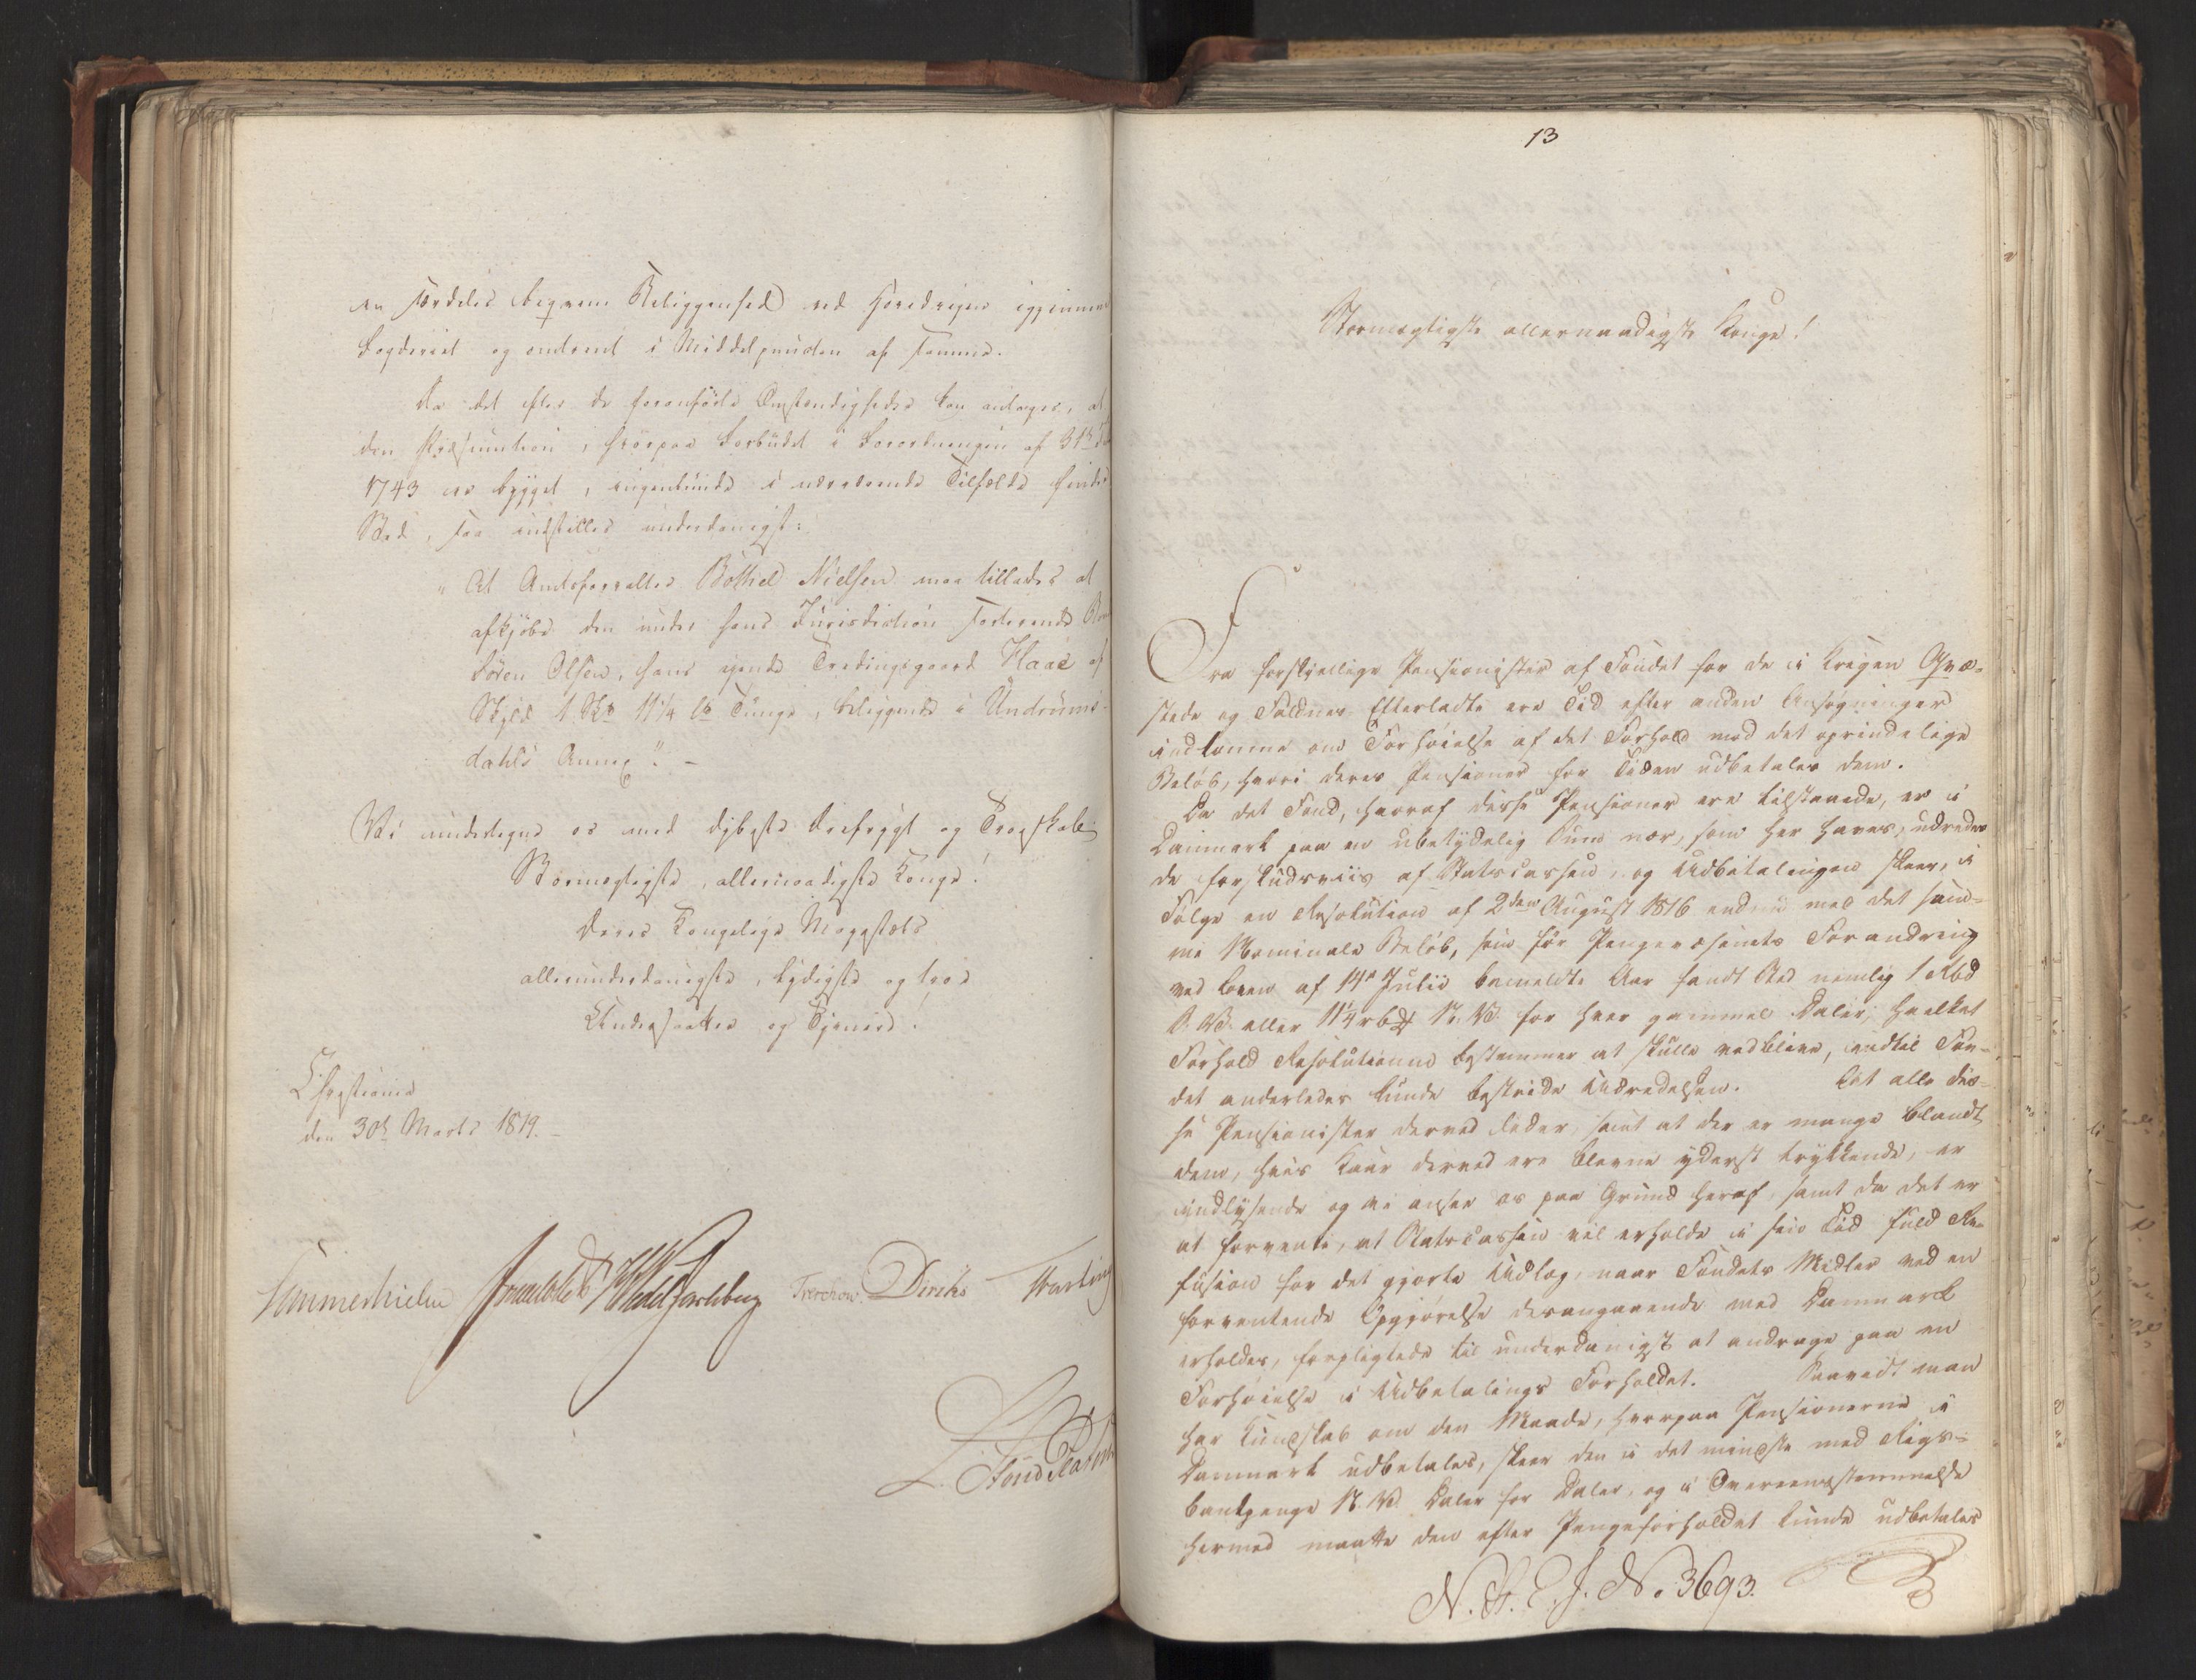 en særdeles beqvem Beliggenhed ved Hovedveien igjennem
Fogderiet og omtrent i Middelpuncten af samme.
Da det efter de foranførte Omstændigheder kan antages, at
den Præsumtion, hvorpaa Forbudet i Forordningen af 31te
1743 er bygget, ingenlunde i nærværende Tilfælde finder
Sted, saa indstilles underdanigst:
"At Amtsforvalter Bothel Nielsen maa tillades at
afkjøbe den under hans Jurisdiction sorterende
Søren Olsen, hans eiende Gaard Haae af
Skyld 1 Skp 11 1/4 lb Tunge, beliggende i Undrums-
dahls Annex". -
Vi undertegne os med dybeste Ærefrygt og Troeskab
Stormægtigste, allernaadigste Konge!
Deres Kongelige Majestæts
allerunderdanigste, lydigste og troe
Undersaatter og Tjenere.
Christiania
den 30te Marts 1819. -
Sommerhielm Wedel Jarlsberg Treschow Diriks
13
Stormægtigste allernaadigste Konge!
Fra forskjellige Pensionister af Fondet for de i Krigen Qvæ-
stede og Faldnes Efterladte ere Tid efter anden Ansøgninger
indkomne om Forhøielse af det Forhold mod det oprindelige
Beløb, hvori deres Pensioner for Tiden udbetales dem.
Da det Fond, hvoraf disse Pensioner ere tilstaaede, er i
Danmark paa en ubetydelig Sum nær, som her haves, udredes
de forskudsviis af Statscassen, og Udbetalingen skeer, i
Følge en Resolution af 2den August 1816 endnu med det sam-
me Nominale Beløb, som før Pengevæsenets Forandring
ved Loven af 14de Junii bemeldte Aar fandt Sted nemlig 1 Rbd
S.V. eller 11 1/4 rbs N.V. for hver gammel Daler, hvilket
Forhold Resolutionen bestemmer at skulle vedblive, indtil Fon-
det anderledes kunde bestride Udredelsen. At alle dis-
se Pensionister derved lider, samt at der er mange blandt
dem, hvis Kaar derved ere blevne yderst trykkende, er
indlysende og vi ansee os paa Grund heraf, samt da det er
at forvente, at Statscassen vil erholde i sin Tid fuld Re-
fusion for det gjorte Udlæg, naar Fondets Midler ved en
forventende Opgjørelse desangaaende med Danmark
erholdes, forpligtede til underdanigst at andrage paa en
Forhøielse i Udbetalings Forholdet. Saavidt man
har Kundskab om den Maade, hvorpaa Pensionerne i
Danmark udbetales, skeer den i det mindste med Rigs-
bankpenge N.V. Daler for Daler, og i Overeensstemmelse
hermed maatte den efter Pengeforholdet kunde udbetales
N. No. 3693.